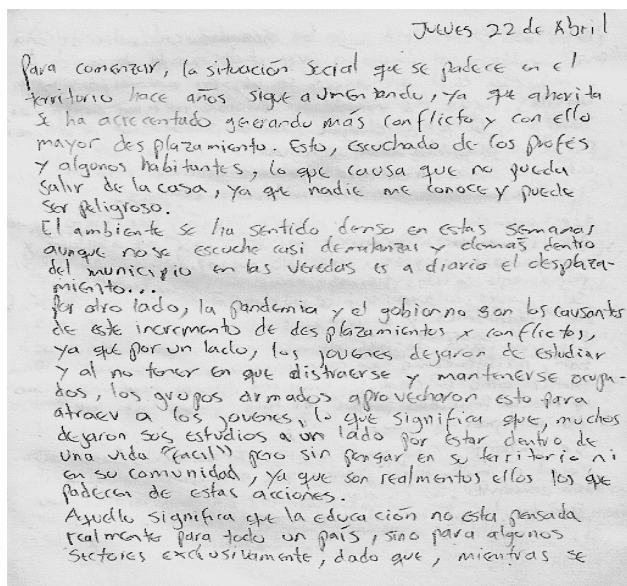 Jueves 22 de Abril
Para comenzar, la situación social que se padece en el
territorio hace años sigue aumentando, ya que ahorita
se ha acrecentado generando más conflicto y con ello
mayor desplazamiento. Esto, escuchado de los profes
y algunos habitantes, lo que causa que no pueda
salir de la casa, ya que nadie me conoce y puede
ser peligroso.
El ambiente se ha sentido denso en estas semanas
aunque no se escuche casi de matanzas y demás dentro
del municipio en las veredas es a diario el desplaza-
miento...
Por otro lado, la pandemia y el gobierno son los causantes
de este incremento de desplazamientos x conflictos,
ya que por un lado, los jovenes dejaron de estudiar
y al no tener en que distraerse y mantenerse ocupa-
dos, los grupos armados aprovecharon esto para
atraer a los jovenes, lo que significa que, muchos
dejaron sus estudios a un lado por estar dentro de
una vida "facil" pero sin pensar en su territorio ni
en su comunidad, ya que son realmentos ellos los que
padecen de estas acciones.
Aquello significa que la educación no esta pensada
realmente para todo un país, sino para algunos
sectores exclusivamente, dado que, mientras se